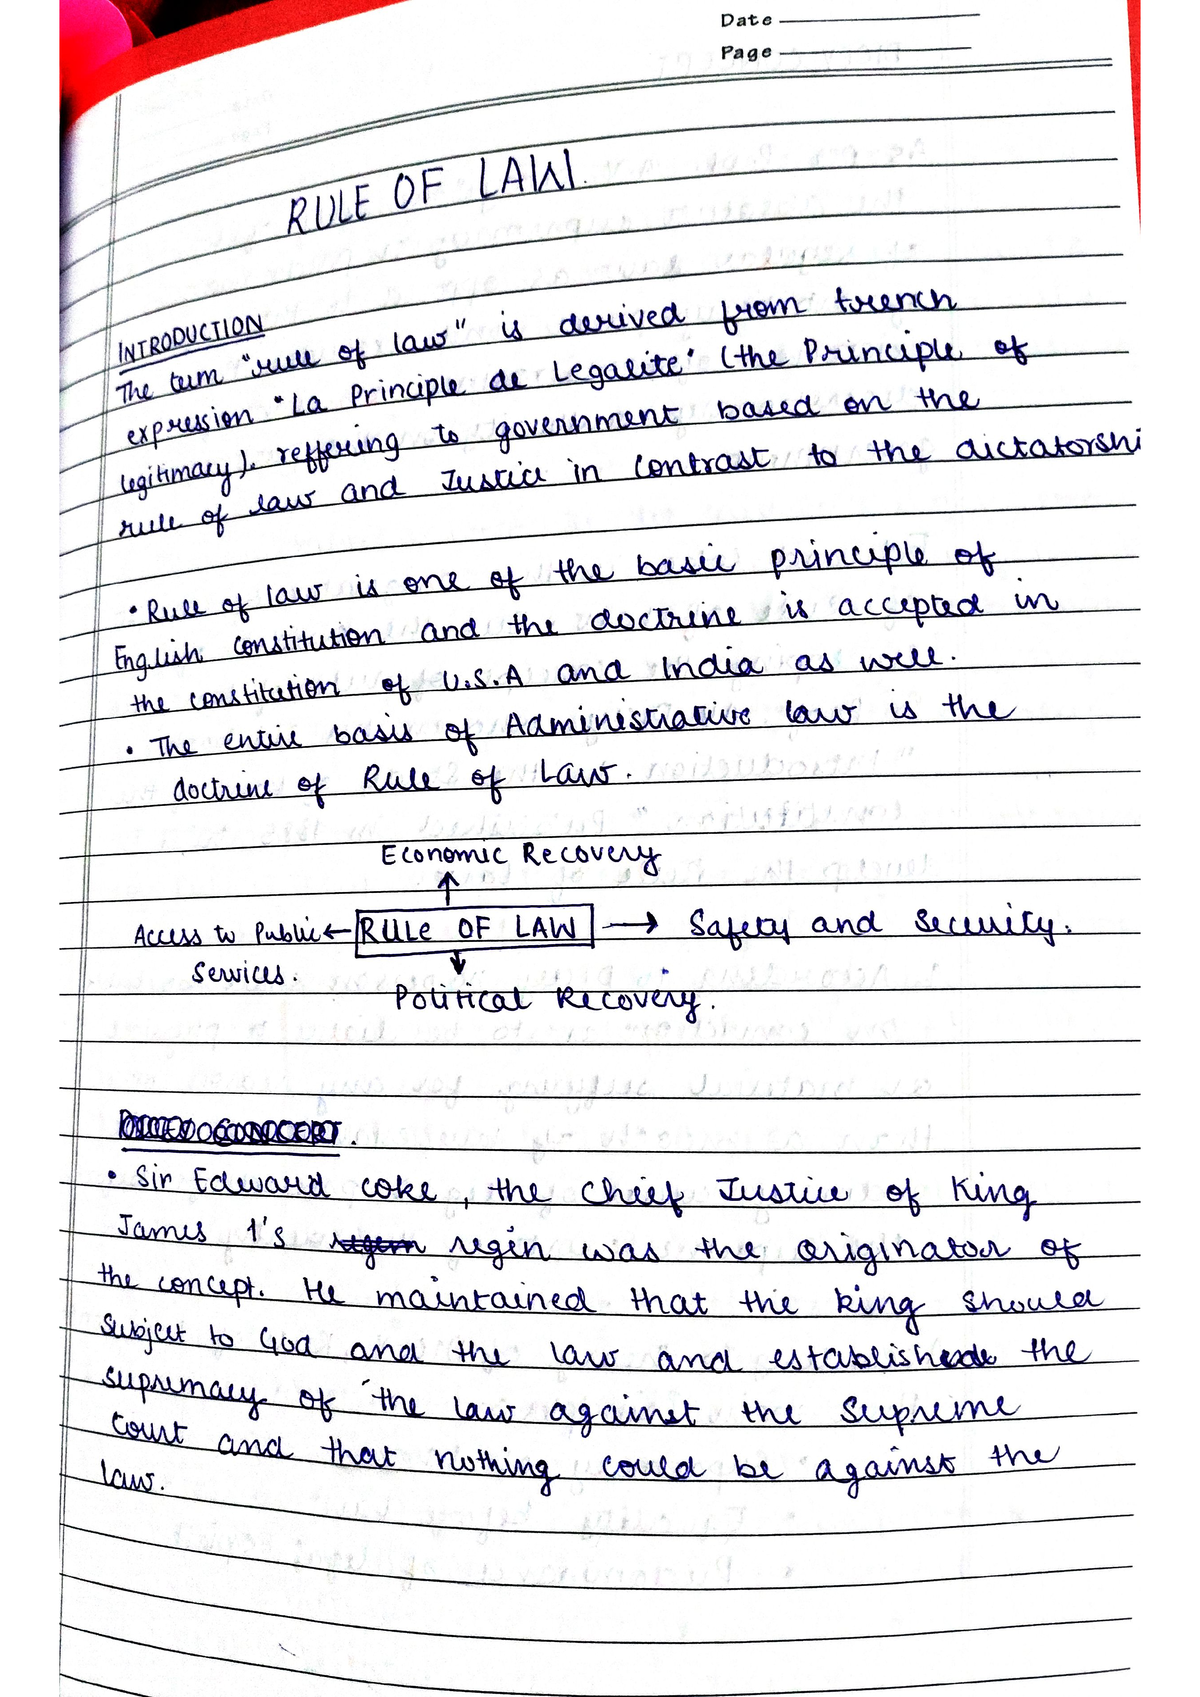 Date
Page
RULE OF LAW.
INTRODUCTION
The term "rule of law" is derived from french
expression "La Principle de Legalite" (the Principle of
legitimacy). reffering to government based on the
rule of law and Justice in contrast to the dictatorshi
• Rule of law is one of the basic principle of
English constitution and the doctrine is accepted in
the constitution of U.S.A and India as well.
• The entire basis of Administrative law is the
doctrine of Rule of Law.
Economic Recovery
Access to Public ← RULE OF LAW → Safety and Security.
Services.
Political Recovery.
• Sir Edward coke, the Chief Justice of King
James 1's regin was the originator of
the concept. He maintained that the king should
subject to God and the law and established the
supremacy of the law against the Supreme
Court and that nothing could be against the
law.